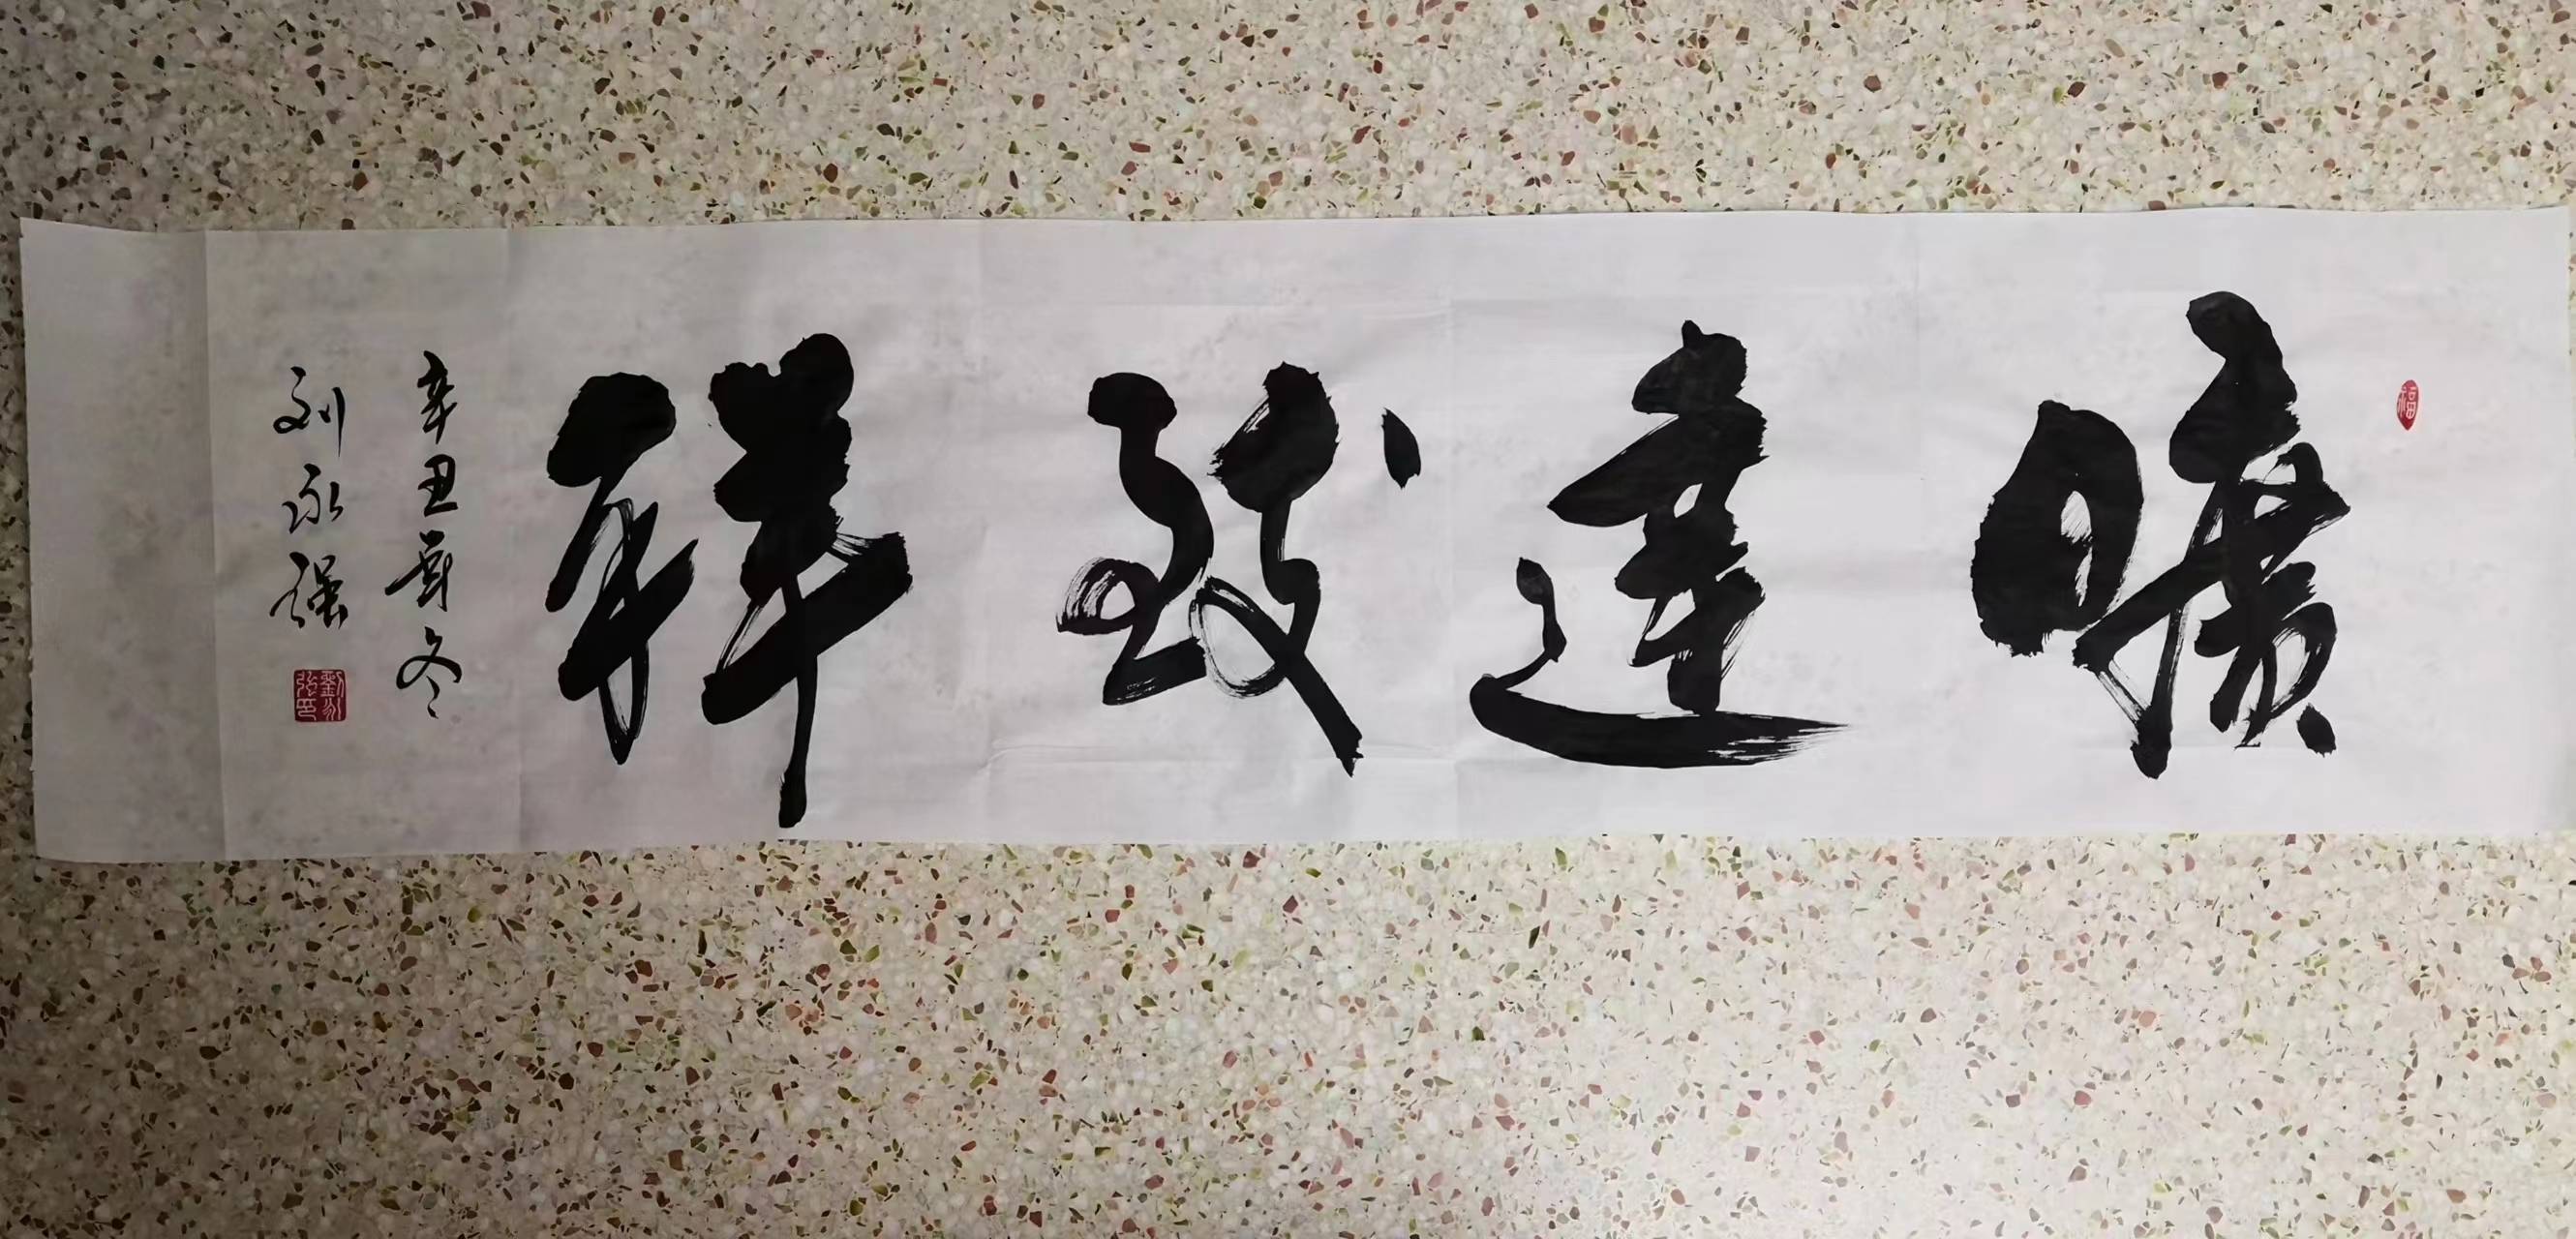 福
曠達致祥
辛丑嚴冬
刘永强
劉永强印